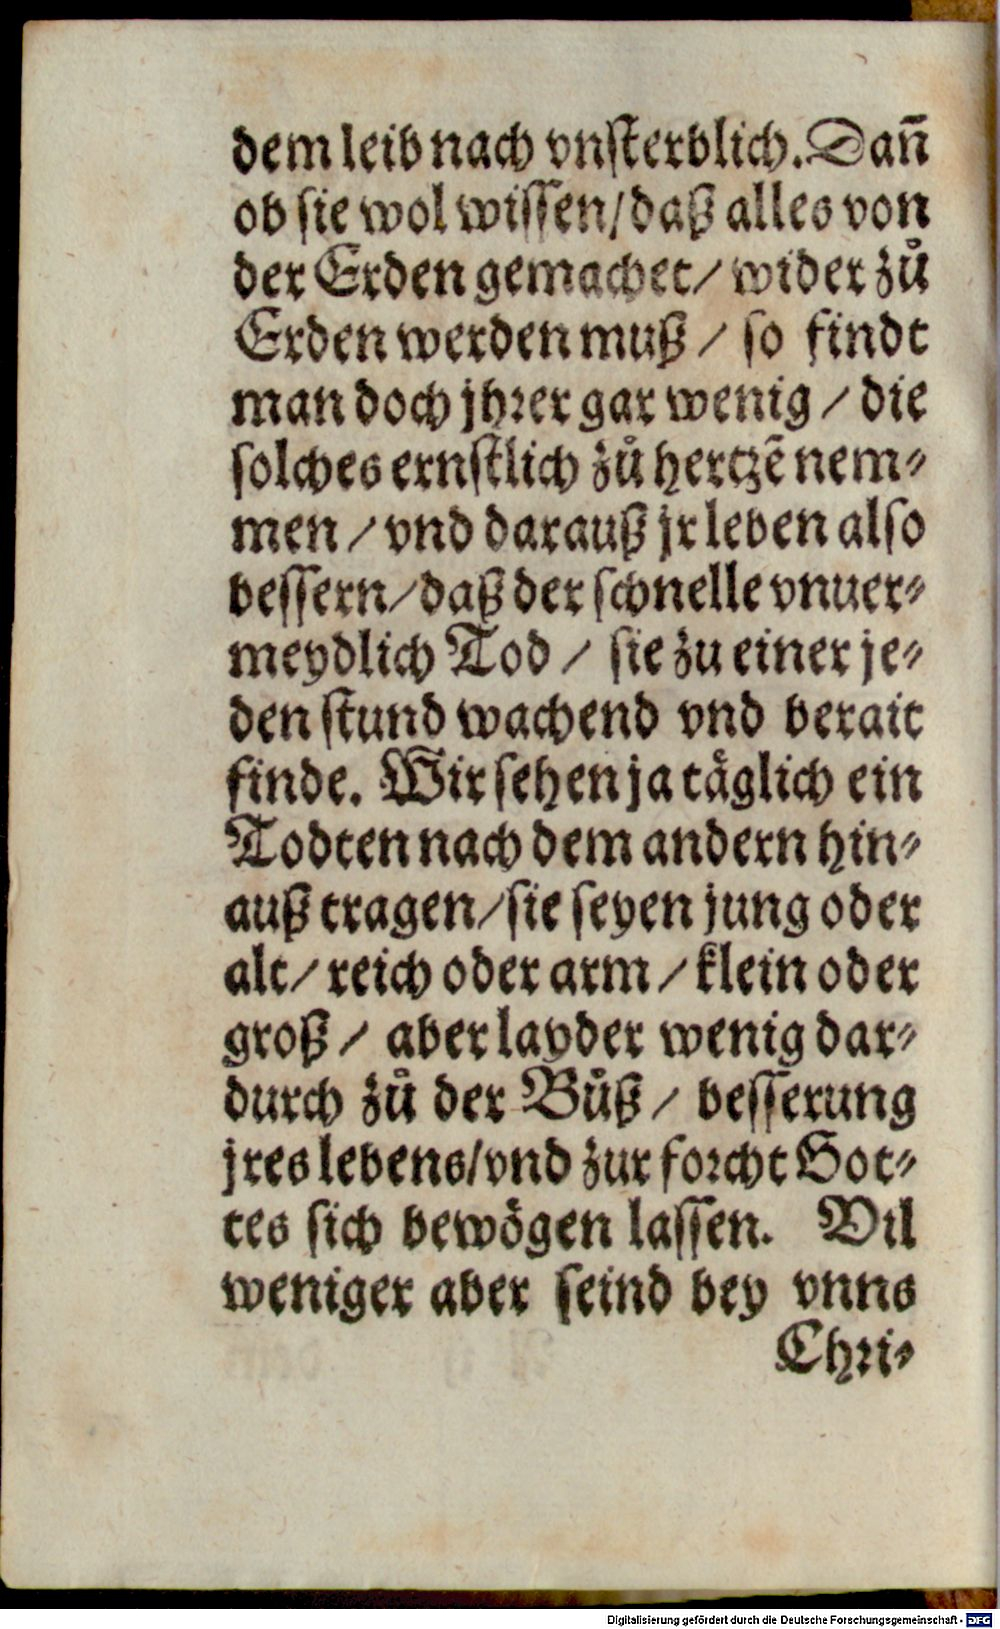 dem leib nach vnsterblich. Dañ
ob sie wol wissen/ daß alles von
der Erden gemachet/ wider zů
Erden werden muß / so findt
man doch jhrer gar wenig / die
solches ernstlich zů hertzē nem-
men / vnd darauß jr leben also
bessern/ daß der schnelle vnuer-
meydlich Tod / sie zu einer je-
den stund wachend vnd berait
finde. Wir sehen ja täglich ein
Todten nach dem andern hin-
auß tragen/ sie seyen jung oder
alt/ reich oder arm / klein oder
groß / aber layder wenig dar-
durch zů der Bůß / besserung
jres lebens/ vnd zur forcht Got-
tes sich bewögen lassen. Vil
weniger aber seind bey vnns
Chri-
Digitalisierung gefördert durch die Deutsche Forschungsgemeinschaft - DFG